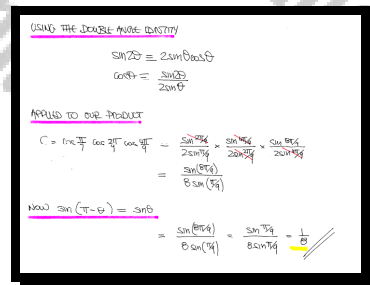 USING THE DOUBLE ANGLE IDENTITY
sin2θ ≡ 2sinθcosθ
cosθ = sin2θ / 2sinθ
APPLIED TO OUR PRODUCT
C = cos π/9 cos 2π/9 cos 4π/9 = sin 2π/9 / 2sin π/9 × sin 4π/9 / 2sin 2π/9 × sin 8π/9 / 2sin 4π/9
= sin(8π/9) / 8 sin(π/9)
NOW sin(π-θ) = sinθ
= sin(8π/9) / 8 sin(π/9) = sin π/9 / 8 sin π/9 = 1/8